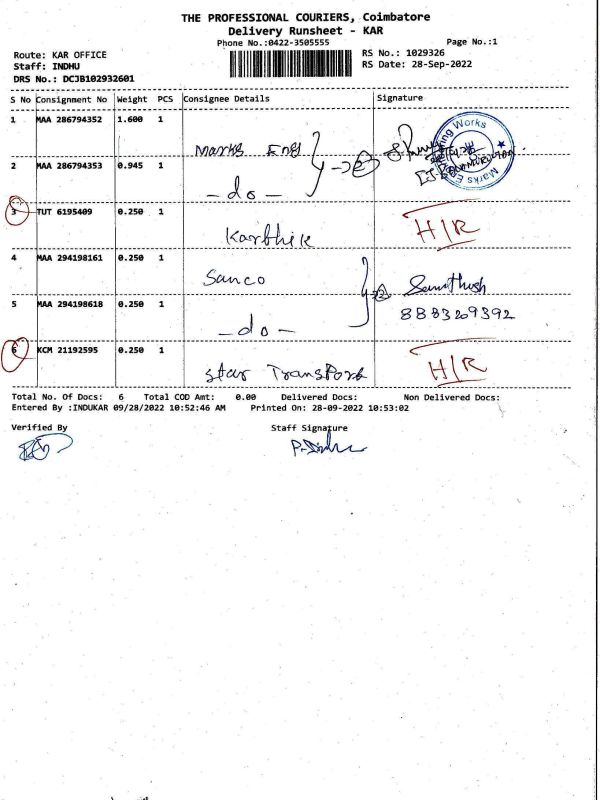 THE PROFESSIONAL COURIERS, Coimbatore
Delivery Runsheet - KAR
Phone No.:0422-3505555 Page No.:1
Route: KAR OFFICE RS No.: 1029326
Staff: INDHU RS Date: 28-Sep-2022
DRS No.: DCJB102932601
S No Consignment No Weight PCS Consignee Details Signature
1 MAA 286794352 1.600 1
Marks Eng
2 MAA 286794353 0.945 1
- do -
Marks Eng Works
3 TUT 6195409 0.250 1
Karthik H/R
4 MAA 294198161 0.250 1
Sanco
5 MAA 294198618 0.250 1
8883209392
- do -
6 KCM 21192595 0.250 1
Star Transport H/R
Total No. Of Docs: 6 Total COD Amt: 0.00 Delivered Docs: Non Delivered Docs:
Entered By :INDUKAR 09/28/2022 10:52:46 AM Printed On: 28-09-2022 10:53:02
Verified By Staff Signature